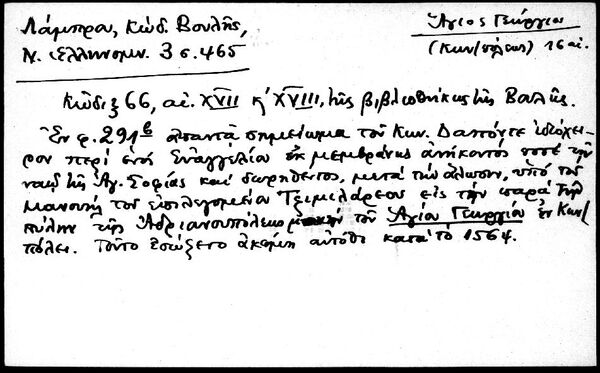 Λάμπρου, Κώδ. Βουλῆς,
Ν. Ἑλληνομν. 3 σ. 465
Ἅγιος Γεώργιος
(Κων/πόλεως) 16 αἰ.
Κῶδιξ 66, αἰ. XVII κ' XVIII, τῆς βιβλιοθήκης τῆς Βουλῆς.
Ἐν φ. 291β ἀπαντᾶ σημείωμα τοῦ Κων. Δαπόντε ἰδιόχει-
ρον περί ἑνός Εὐαγγελίου ἐκ μεμβράνης ἀνήκοντός ποτε τῷ
ναῷ τῆς Ἁγ. Σοφίας καί δωρηθέντος, μετά τήν ἅλωσιν, ὑπό τοῦ
Μανουήλ τοῦ ἐπιλεγομένου εἰς τήν παρά τήν
πύλην τῆς Ἀδριανουπόλεως τοῦ Ἁγίου Γεωργίου ἐν Κων/
πόλει. Τοῦτο ἐσώζετο ἀκόμη αὐτόθι κατά τό 1564.